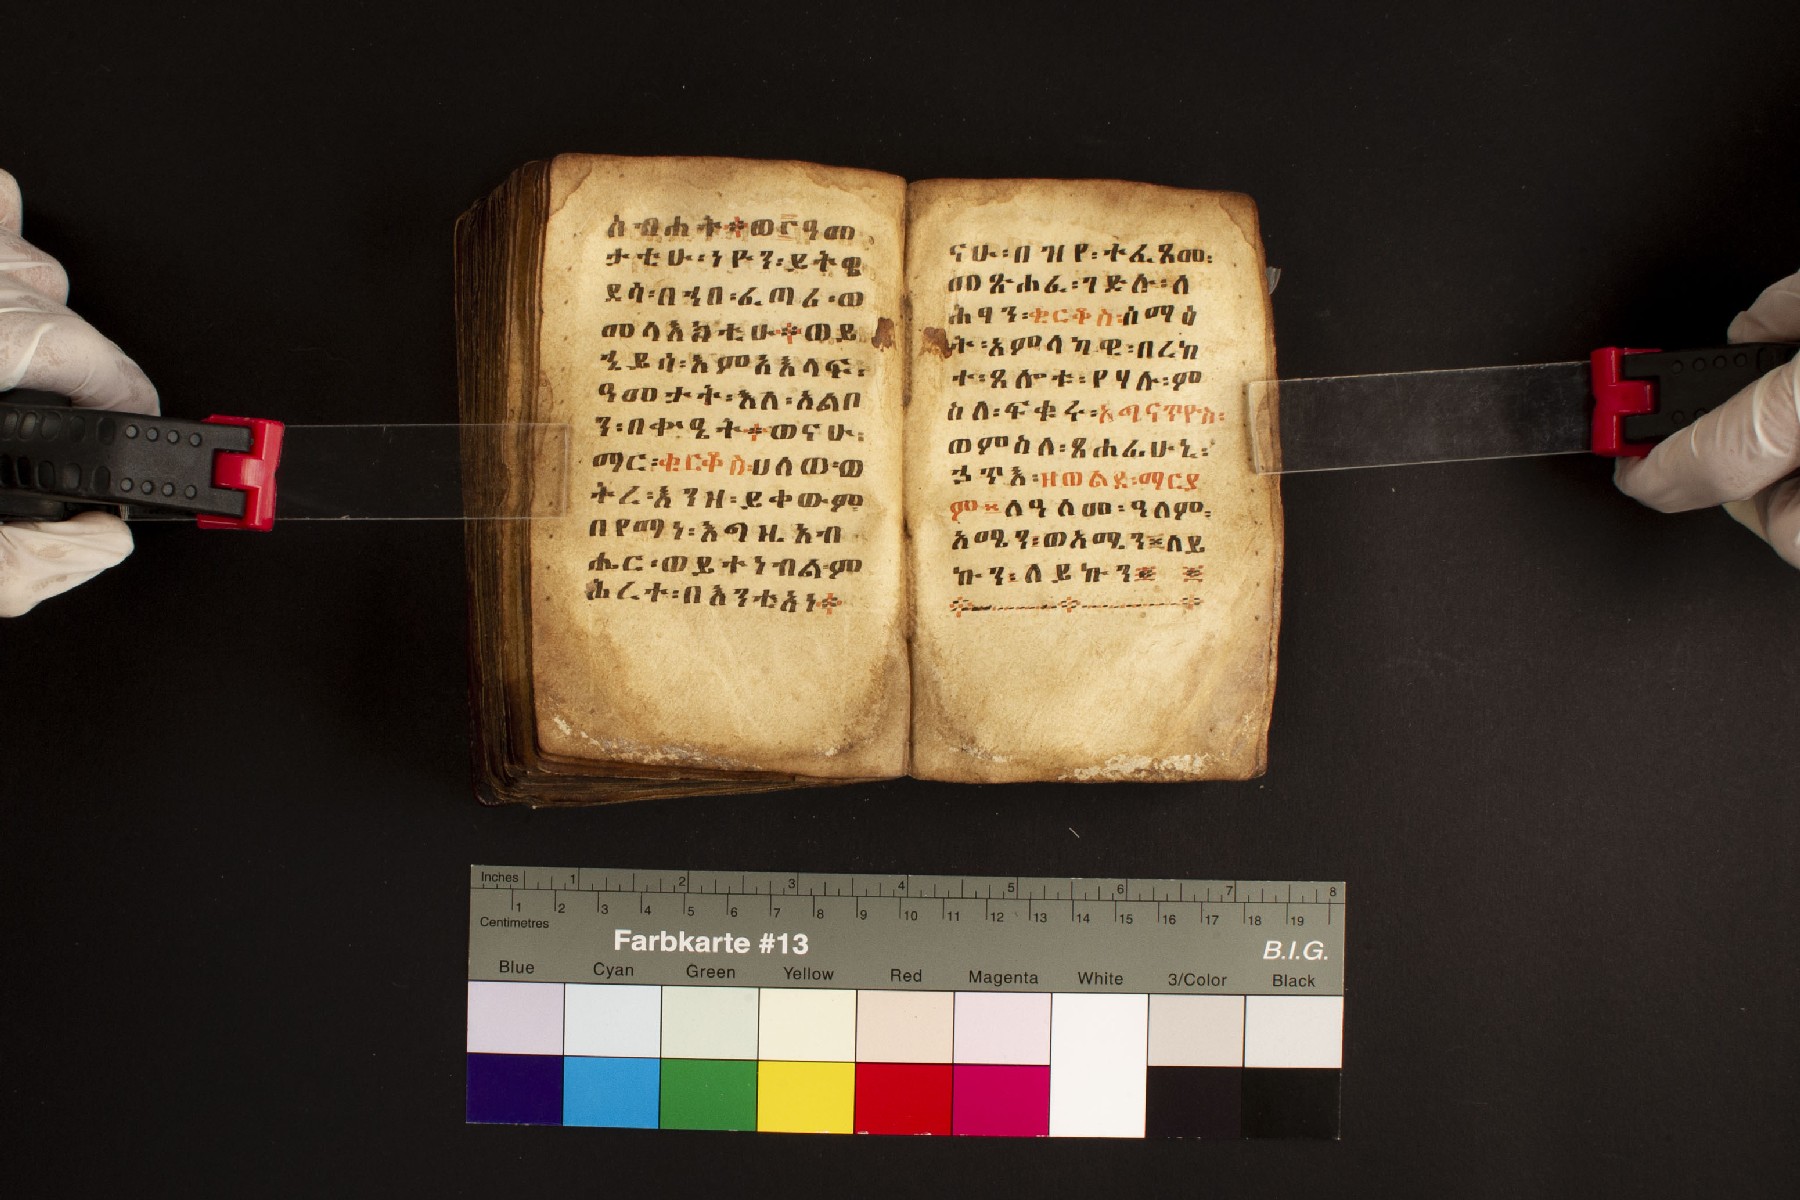 ስብሐት፡ወ፫ዓመ
ታቲሁ፡ነዮን፡ይትዌ
ደሳ፡በኂበ፡ፈጣሪ፡ወ
መላእክቲሁ፡ወይ
ኄይሳ፡እምአእላፍ፡
ዓመታት፡እለ፡አልቦ
ን፡በቍዔት፡ወናሁ፡
ማር፡ቂርቆስ፡ሀለወ፡ወ
ትረ፡እንዘ፡ይቀውም
በየማነ፡እግዚአብ
ሔር፡ወይተነብል፡ም
ሕረተ፡በእንቲአነ
ናሁ፡በዝየ፡ተፈጸመ፡
መጽሐፈ፡ገድሉ፡ለ
ሕፃን፡ቂርቆስ፡ሰማዕ
ት፡አምላካዊ፡በረከ
ተ፡ጸሎቱ፡የሃሉ፡ም
ስለ፡ፍቁሩ፡
ወምስለ፡ጸሐፊሁኒ፡
ኃጥእ፡ዘወልደ፡ማርያ
ም፡ለዓለመ፡ዓለም፡
አሜን፡ወአሜን፡ለይ
ኩን፡ለይኩን፡
Inches 1 2 3 4 5 6 7 8
1 2 3 4 5 6 7 8 9 10 11 12 13 14 15 16 17 18 19
Centimetres
Farbkarte #13
B.I.G.
Blue Cyan Green Yellow Red Magenta White 3/Color Black